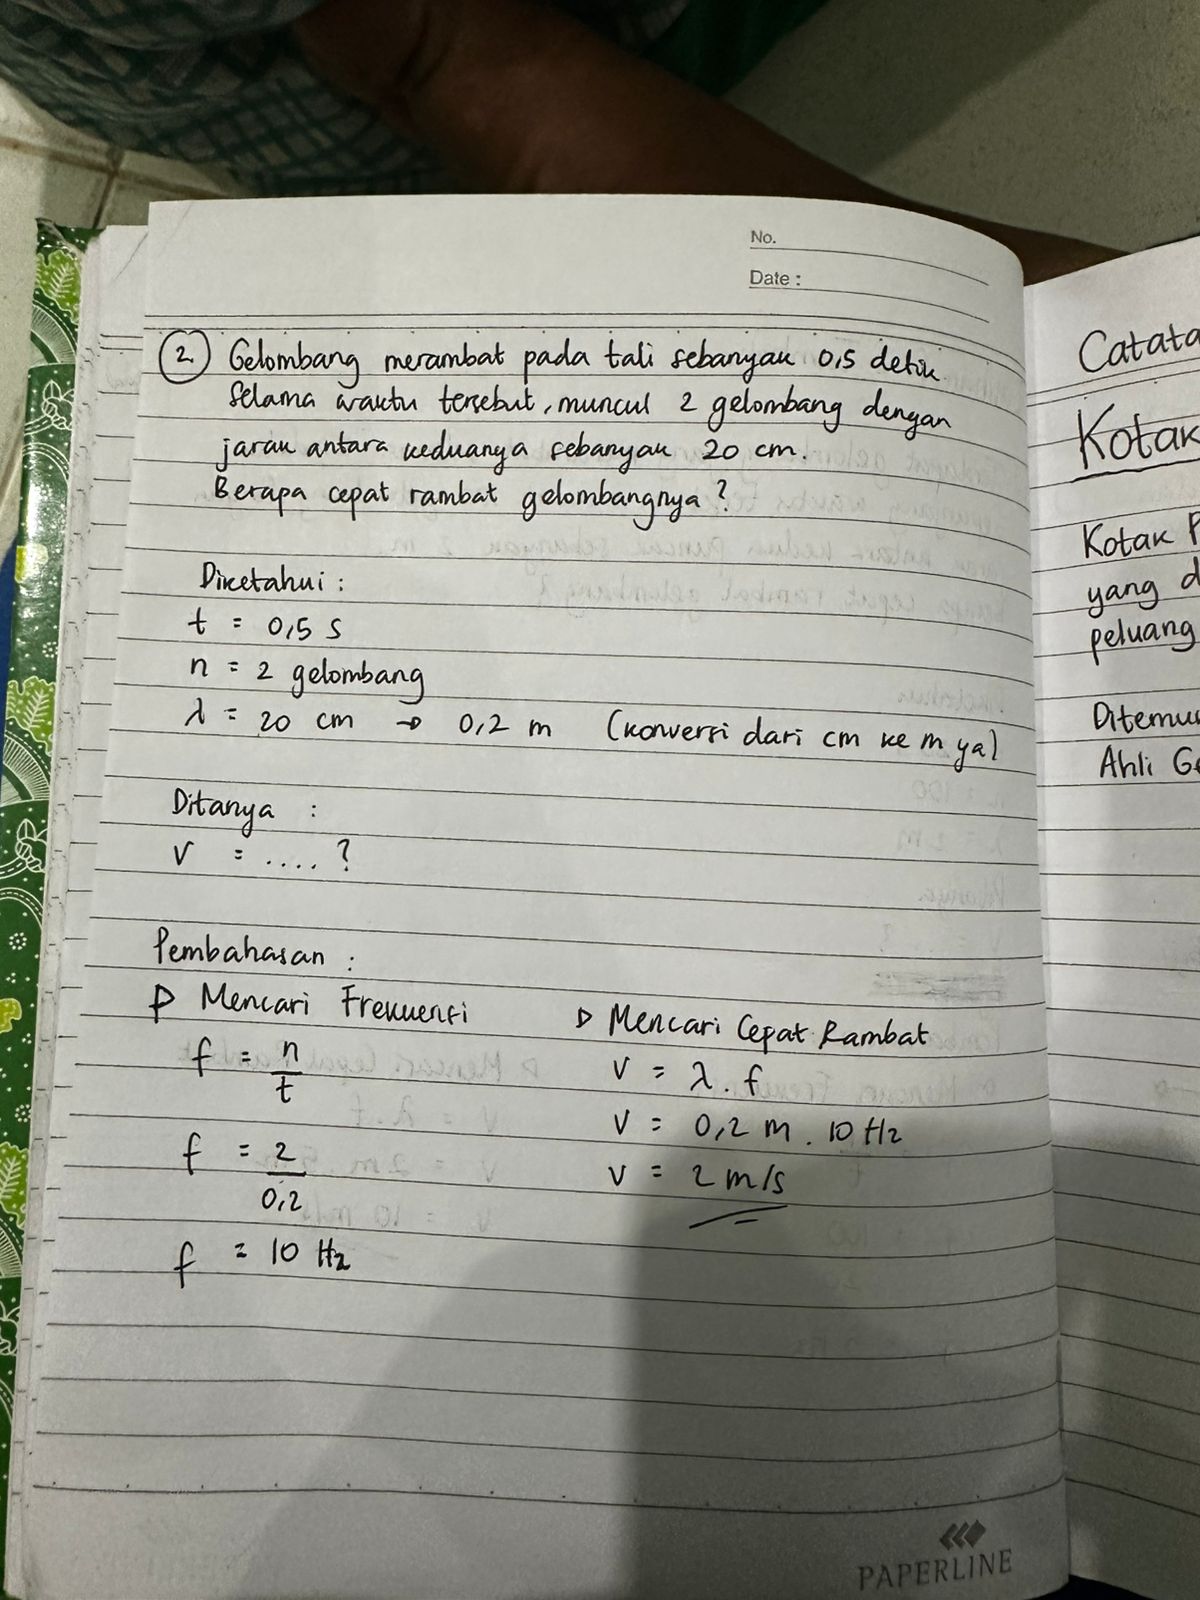 No.
Date :
2. Gelombang merambat pada tali sebanyak 0,5 detik.
Selama waktu tersebut, muncul 2 gelombang dengan
jarak antara keduanya sebanyak 20 cm.
Berapa cepat rambat gelombangnya ?
Diketahui :
t = 0,5 s
n = 2 gelombang
λ = 20 cm → 0,2 m (konversi dari cm ke m ya)
Ditanya :
V = .... ?
Pembahasan :
▷ Mencari Frekuensi
f = n
t
f = 2
0,2
f = 10 Hz
▷ Mencari Cepat Rambat
V = λ . f
V = 0,2 m . 10 Hz
V = 2 m/s
PAPERLINE
Catata
Kotak
Kotak P
yang d
peluang
Ditemu
Ahli Ge